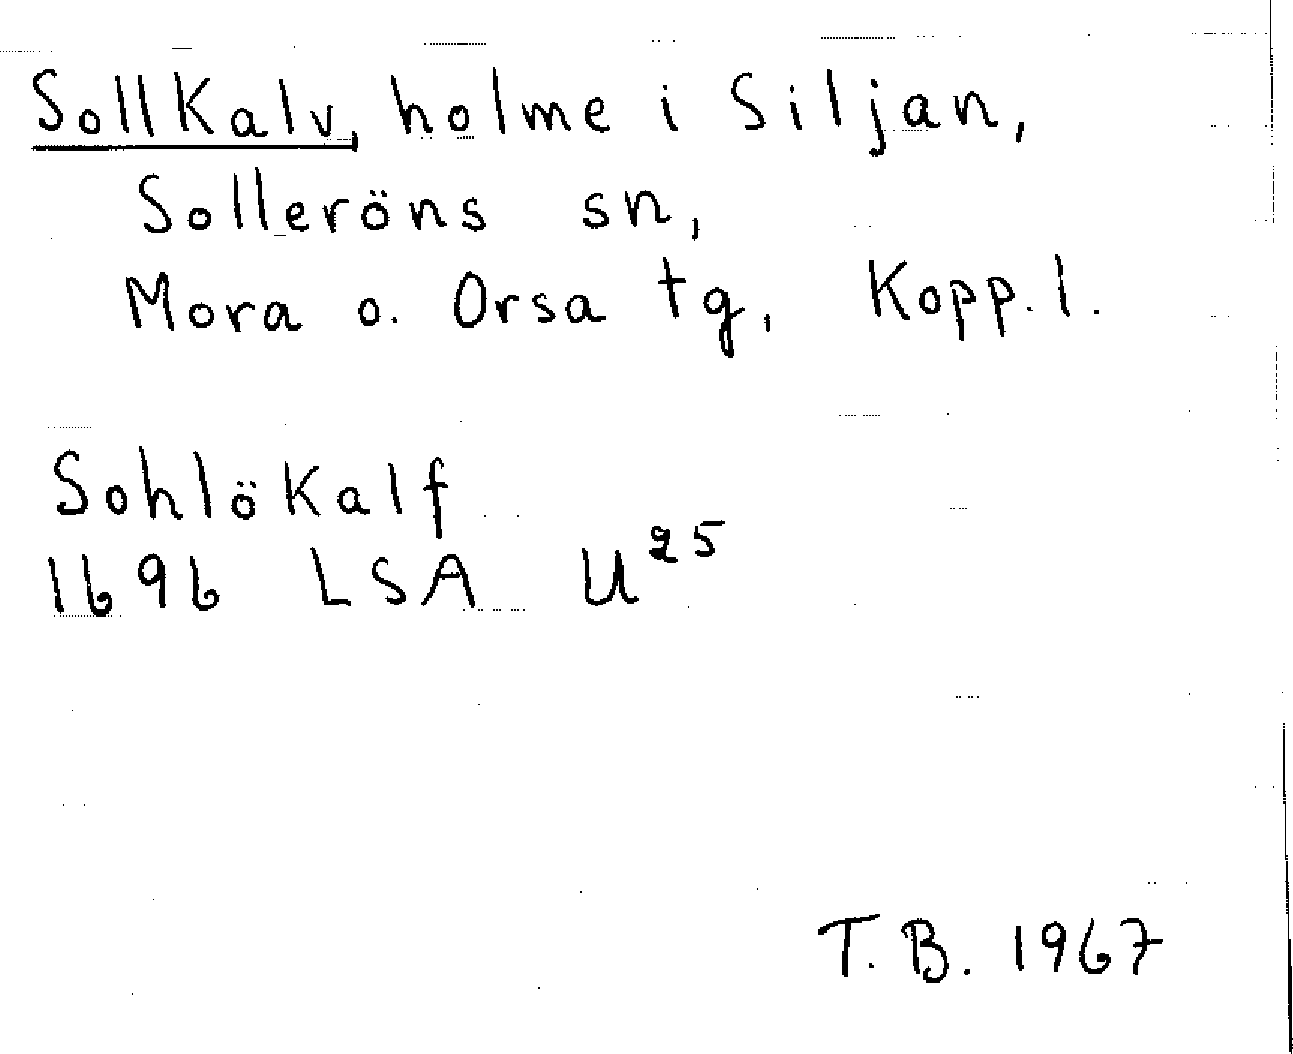 Sollkalv, holme i Siljan,
Solleröns sn,
Mora o. Orsa tg, Kopp. l.
Sohlökalf
1696 LSA U25
T. B. 1967